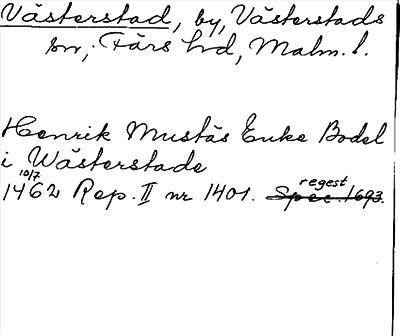 Västerstad, by, Västerstads
sn, Färs hd, Malm. l.
Henrik Mustäs Enke Bodel
i Wästerstade
10/7
1462 Rep. II nr 1401. Spec. 1693.
regest